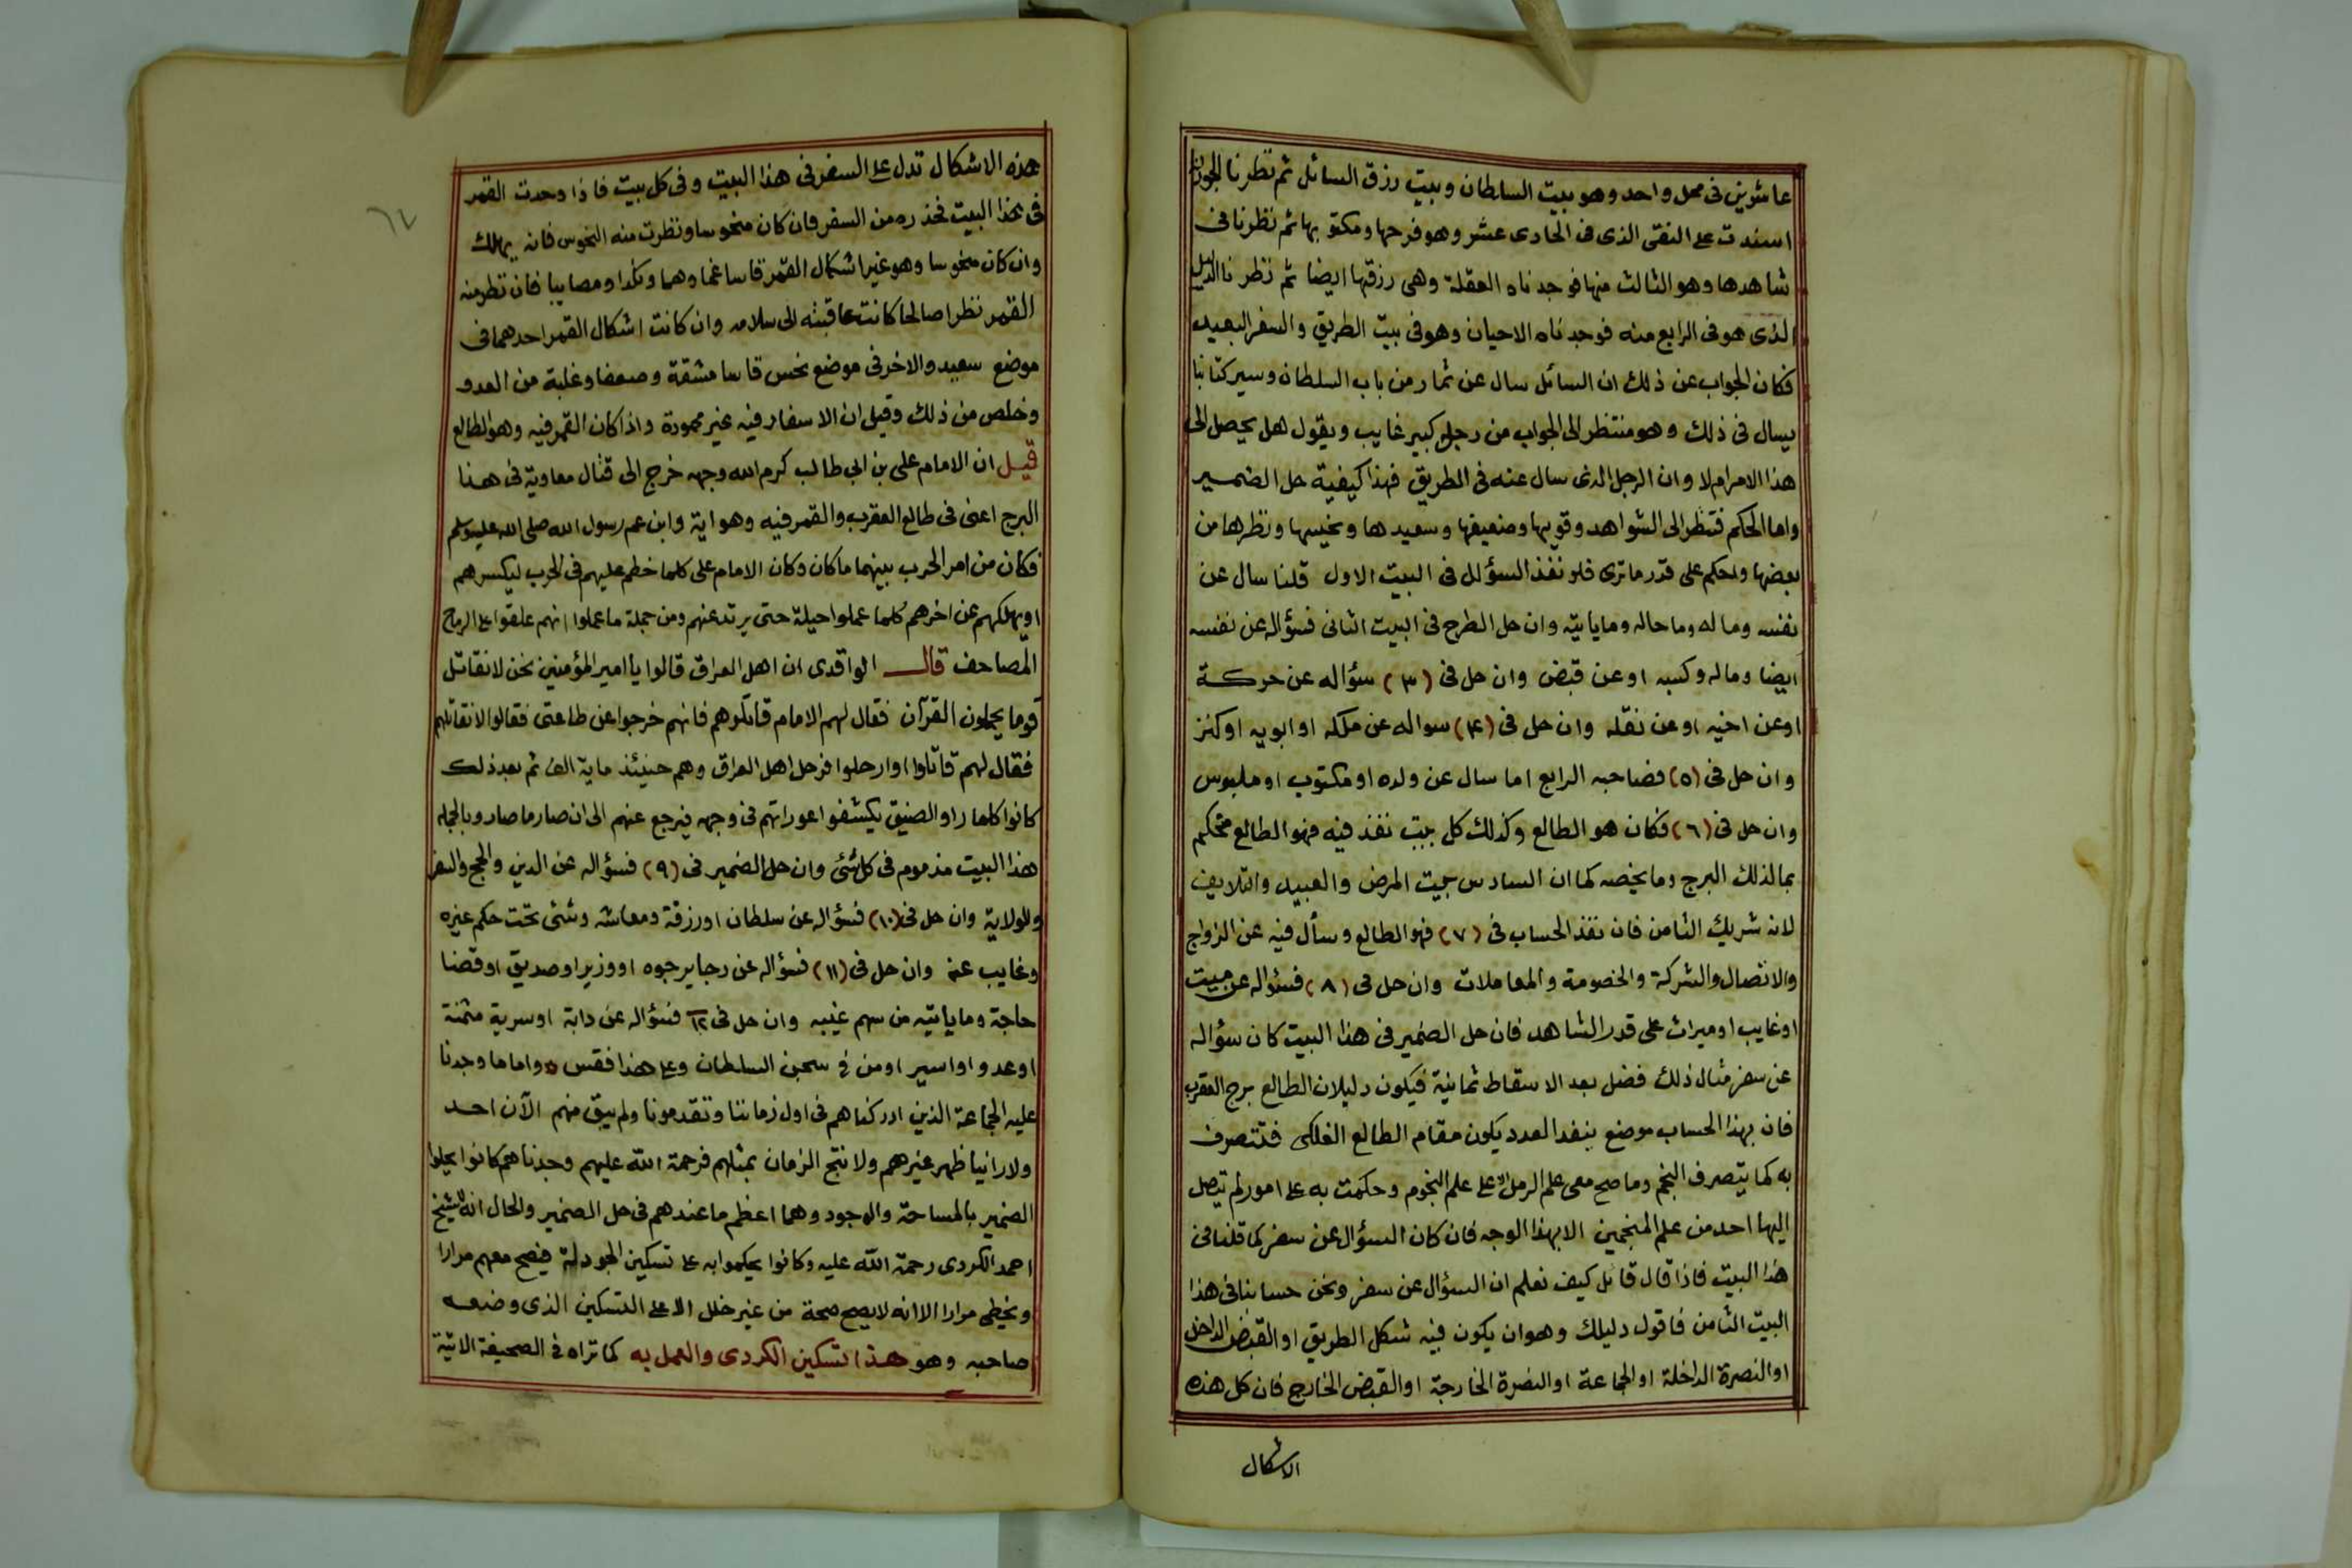 عاشوين في محل واحد وهو بيت السلطان وبيت رزق السائل ثم نظرنا
اسندت على النقي الذي في الحادى عشر وهو فرحها ومكتوبها ثم نظرنا في
شاهدها وهو الثالث منها فوجدناه العقلة وهى رزقها ايضا ثم نظرنا الدليل
الذى هو في الرابع منه فوجدناه الاحيان وهو في بيت الطريق والسفر البعيد
فكان الجواب عن ذلك ان السائل سال عن ثمار من باب السلطان وسير كتابا
يسال في ذلك وهو منتظر الى الجواب من رجل كبير غايب ويقول هل يحصل الى
هذا الامر ام لا وان الرجل الذى سال عنه في الطريق فهذا كيفية حل الضمير
واما الحكم فتنظر الى الشواهد وقويها وضعيفها وسعيدها ونحيسها ونظرها من
بعضها والحكم على قدر ما ترى فلو نفذ السؤال في البيت الاول قلنا سال عن
نفسه وماله وما حاله وما ياتيه وان حل الطرح في البيت الثانى فسؤاله عن نفسه
ايضا وماله وكسبه او عن قبض وان حل في (٣) سؤاله عن حركة
او عن اخيه او عن نقله وان حل في (٤) سواله عن ملكه او ابويه او كنز
وان حل في (٥) فصاحبه الرابع اما سال عن ولده او مكتوب او ملبوس
وان حل في (٦) فكان هو الطالع وكذلك كل بيت نفذ فيه فهو الطالع فتحكم
بما لذلك البرج وما يخصه كما ان السادس بيت المرض والعبيد والتلايف
لانه شريك الثامن فان نفذ الحساب في (٧) فهو الطالع وسأل فيه عن الزواج
والاتصال والشركة والخصومة والمعاملات وان حل في (٨) فسئواله عن ميت
او غايب او ميراث على قدر الشاهد فان حل الضمير في هذا البيت كان سؤاله
عن سفر مثال ذلك فضل بعد الاسقاط ثمانية فيكون دليلان الطالع برج العقرب
فان بهذا الحساب موضع ينفد العدد يكون مقام الطالع الفلكى فتتصرف
به كما يتصرف النجم وما صح معى علم الرمل الا على علم النجوم وحكمت به على امور لم تيصل
اليها احد من علم المنجمين الا بهذا الوجه فان كان السؤال عن سفر كما قلنا في
هذا البيت فاذا قال قائل كيف نعلم ان السؤال عن سفر ونحن حسابنا في هذا
البيت الثامن فاقول دليلك وهو ان يكون فيه شكل الطريق او القبض الداخل
او النصرة الداخلة او الجماعة او النصرة الخارجة او القبض الخارج فان كل هذه
الاشكال
هذه الاشكال تدل على السفر في هذا البيت وفي كل بيت فاذا وجدت القمر
في هذا البيت فحذره من السفر فان كان منحوسا ونظرت منه النحوس فانه يهلك
وان كان منحوسا وهو غير اشكال القمر قاسا غما وهما ونكدا ومصايبا فان نظر منه
القمر نظرا صالحا كانت عاقبته الى سلامه وان كانت اشكال القمر احدهما في
موضع سعيد والاخر في موضع نحس قاسا مشقة وضعفا وغلبة من العدو
وخلص من ذلك وقيل ان الاسفار فيه غير محمودة واذا كان القمر فيه وهو الطالع
قيل ان الامام على بن ابى طالب كرم الله وجهه خرج الى قتال معاوية في هذا
البرج اعنى في طالع العقرب والقمر فيه وهو اية وابن عم رسول الله صلى الله عليه وسلم
فكان من امر الحرب بينهما ما كان وكان الامام على كلما خطم عليهم في الحرب ليكسرهم
او يهلكهم عن اخرهم كلما عملوا حيلة حتى يرتد عنهم ومن جملة ما عملوا انهم علقوا على الرماح
المصاحف قال الواقدى ان اهل العراق قالوا يا امير المؤمنين نحن لا نقاتل
قوما يحملون القرآن فقال لهم الامام قاتلوهم فانهم خرجوا عن طاعتى فقالوا لا نقاتلهم
فقال لهم قاتلوا او ارحلوا فرحل اهل العراق وهم حينئذ ماية الف ثم بعد ذلك
كانوا كلما راوا الضيق يكشفوا عوراتهم في وجهه فيرجع عنهم الى ان صار ما صار وبالجملة
هذا البيت مذموم في كل شئ وان حل الضمير في (٩) فسؤاله عن الدين والحج والسفر
والولاية وان حل في (١٠) فسؤاله عن سلطان او رزقة ومعاشه وشئى تحت حكم غيره
وغايب عنه وان حل في (١١) فسؤاله عن رجا يرجوه او وزير او صديق او قضا
حاجة وما ياتيه من سهم غيبه وان حل في ١٢ فسؤاله عن دابة او سرية مثمنة
او عدو او اسير او من في سجن السلطان وعلى هذا فقس واما ما وجدنا
عليه الجماعة الذين ادركناهم في اول زماننا وتقدمونا ولم يبق منهم الآن احد
ولا راينا ظهر غيرهم ولا نتج الزمان بمثلهم فرحمة الله عليهم وجدناهم كانوا يحلوا
الضمير بالمساحة والوجود وهما اعظم ما عندهم في حل الضمير والحال انه للشيخ
احمد الكردى رحمة الله عليه وكانوا يحكموا به على تسكين الجودلة فيصح معهم مرارا
ويخطى مرارا الا انه لا يصح صحة من غير خلل الا على التسكين الذى وضعه
صاحبه وهو هذا التسكين الكردى والعمل به كما تراه في الصحيفة الاتية